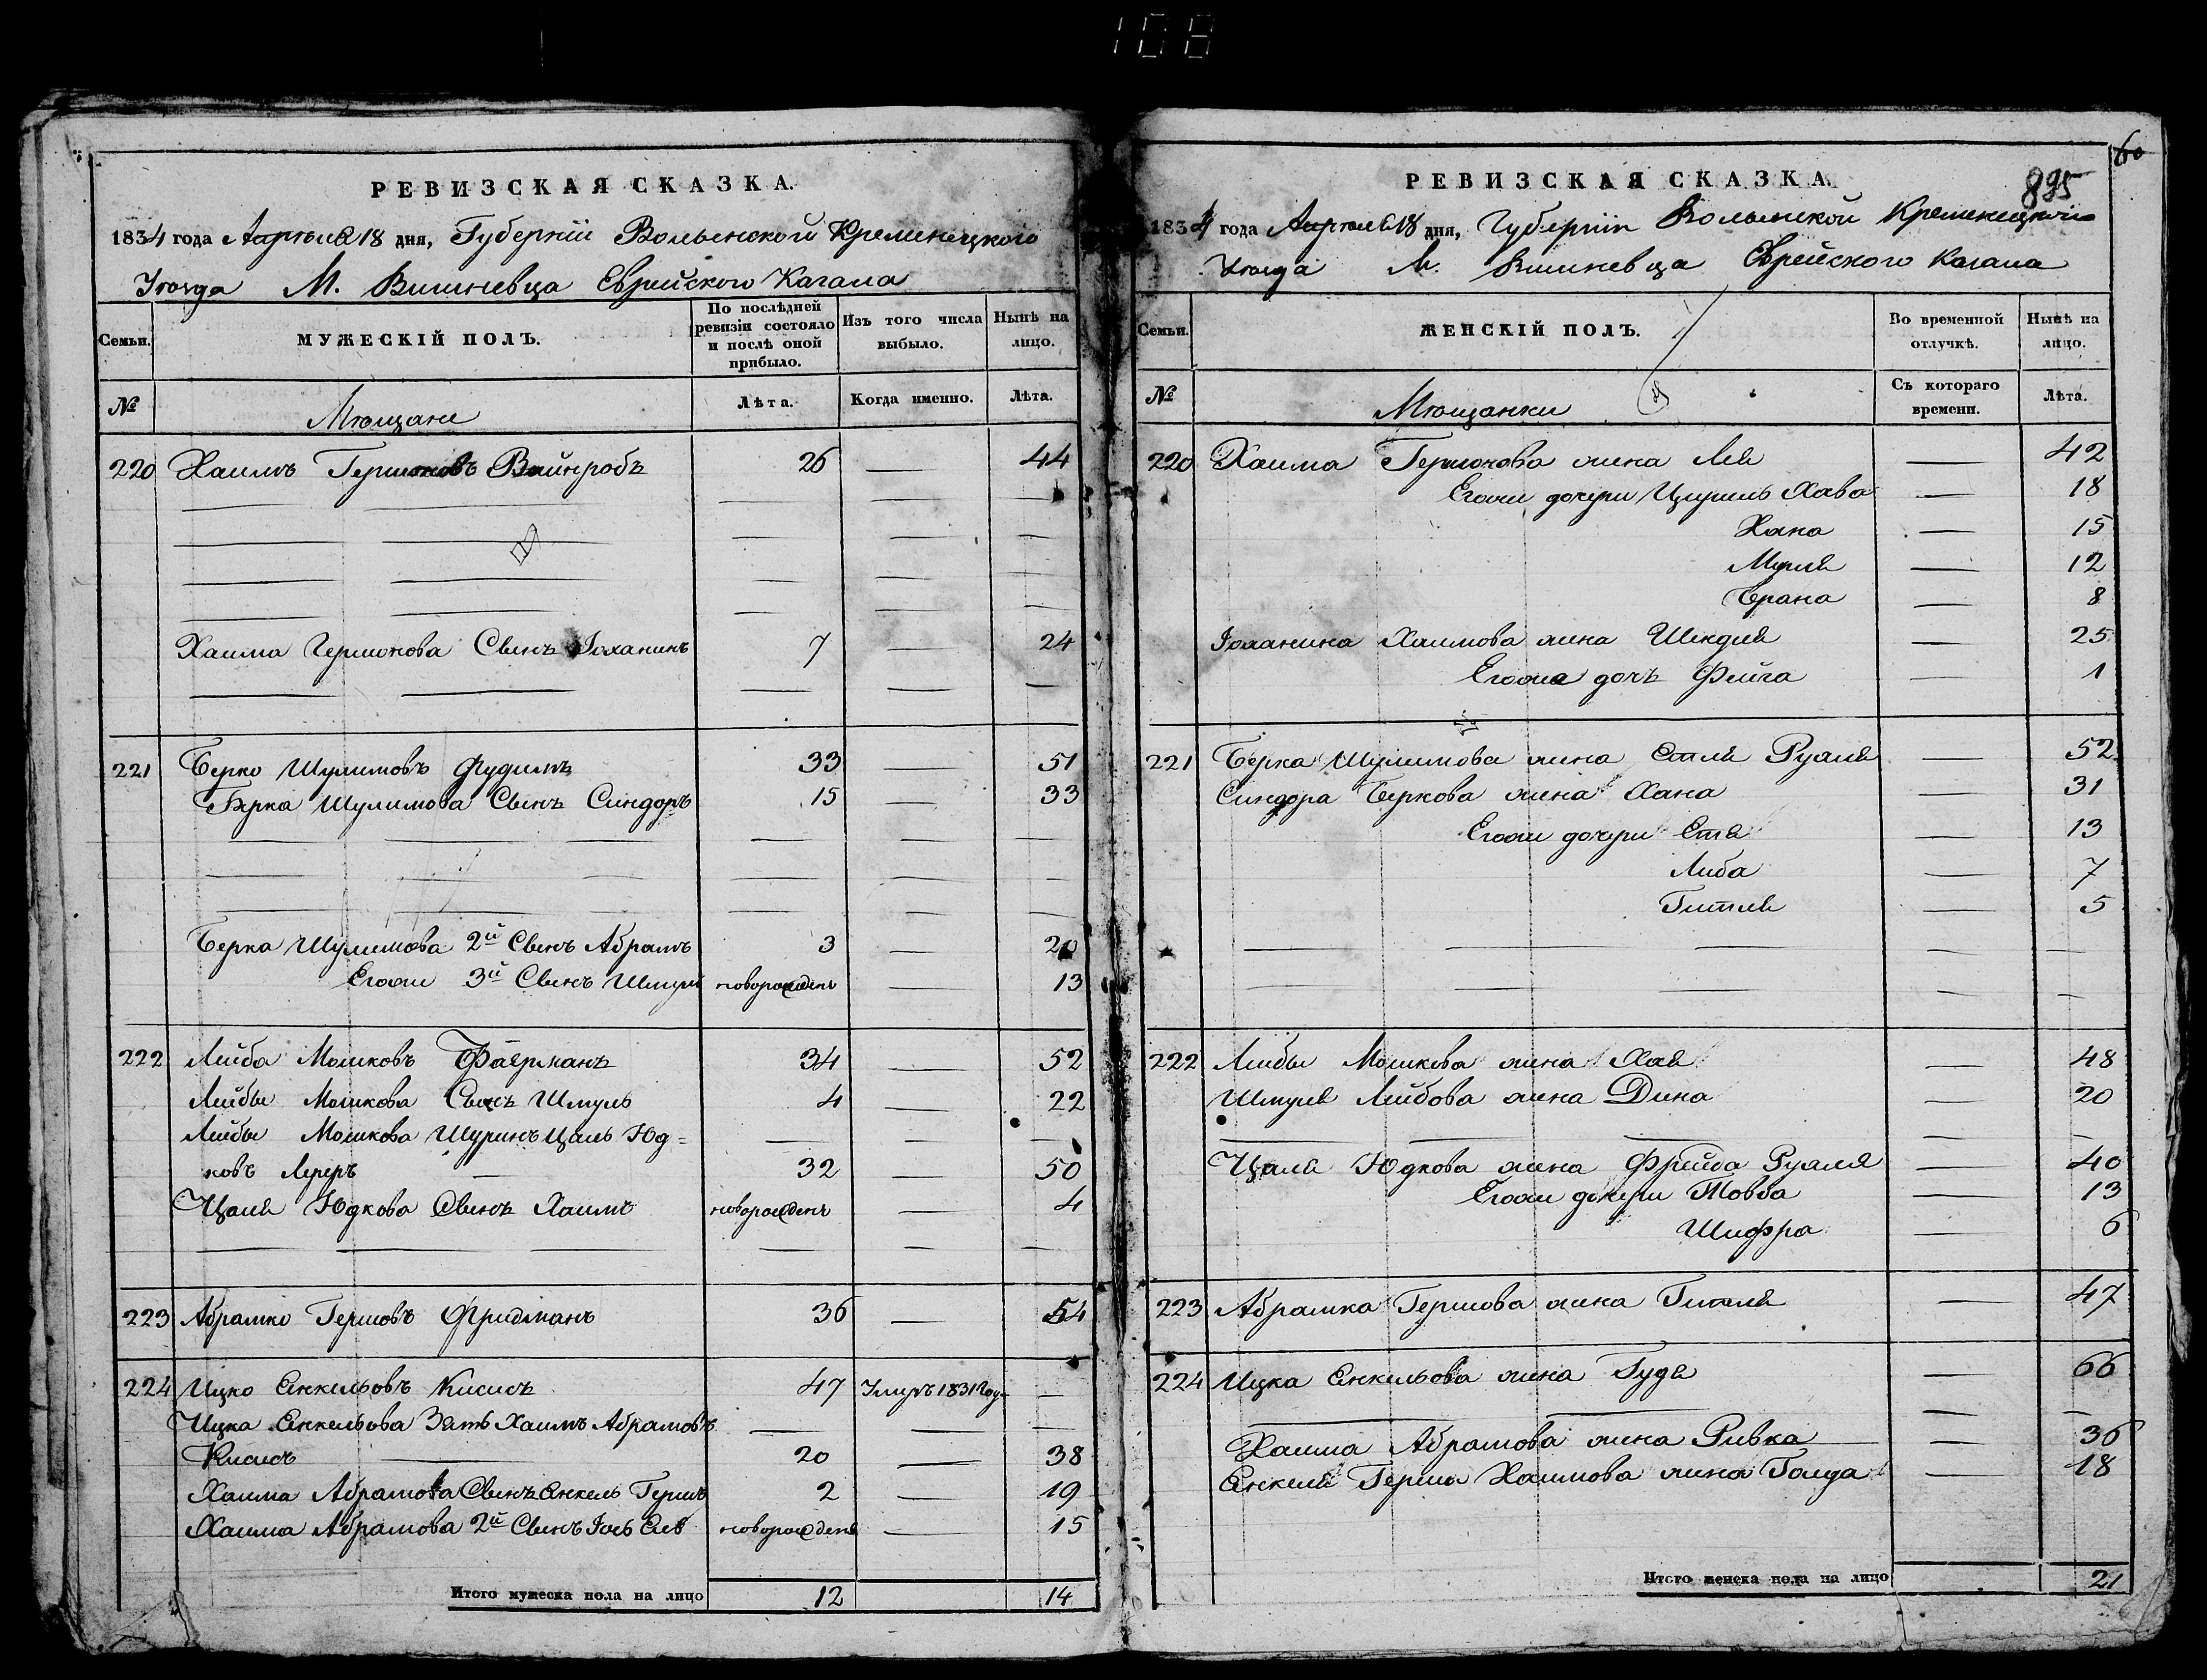 108
РЕВИЗСКАЯ СКАЗКА.
1834 года Апреля 18 дня, Губернiи Волынской Кременецкого
Уѣзда М. Вишневца Еврейского Кагала
Семьи.
МУЖЕСКIЙ ПОЛЪ.
По послѣдней ревизiи состояло и послѣ оной прибыло.
Изъ того числа выбыло.
Нынѣ на лицо.
№
Мѣщане
Лѣта.
Когда именно.
Лѣта.
220 Хаимъ Гершоновъ Вайнробъ 26 — 44
Хаима Гершонова Сынъ Іоханинъ 7 — 24
221 Берко Шулимовъ Фудимъ 33 — 51
Берка Шулимова Сынъ Синдоръ 15 — 33
Берка Шулимова 2й Сынъ Абрамъ 3 — 20
Егоже 3й Сынъ Шмуль новорожденъ — 13
222 Лейба Мошковъ Фаерманъ 34 — 52
Лейбы Мошкова Сынъ Шмуль 4 — 22
Лейбы Мошкова Шуринъ Цаль Юд=
ковъ Лереръ — 32 — 50
Цаля Юдкова Сынъ Хаимъ новорожденъ — 4
223 Абрамко Гершовъ Фридманъ 36 — 54
224 Ицко Енкельовъ Кисисъ 47 Умеръ 1831 Год. —
Ицка Енкельова Зять Хаимъ Абрамовъ
Кисисъ — 20 — 38
Хаима Абрамова Сынъ Енкель Гершъ 2 — 19
Хаима Абрамова 2й Сынъ Іось новорожденъ — 15
Итого мужеска пола на лицо 12 14
60
895
РЕВИЗСКАЯ СКАЗКА.
1834 года Апреля 18 дня, Губернiи Волынской Кременецкого
Уѣзда М. Вишневца Еврейского Кагала
Семьи.
ЖЕНСКIЙ ПОЛЪ.
Во временной отлучкѣ.
Нынѣ на лицо.
№
Мѣщанки
Съ котораго времени.
Лѣта.
220 Хаима Гершонова жена Лея — 42
Егоже дочери Цирель Хава — 18
Хана — 15
Мирля — 12
Брана — 8
Іоханина Хаимова жена Шендля — 25
Егоже дочь Фейга — 1
221 Берка Шулимова жена Етля Рухля — 52
Синдора Беркова жена Хана — 31
Егоже дочери Етя — 13
Либа — 7
Гитля — 5
222 Лейбы Мошкова жена Хая — 48
Шмуля Лейбова жена Дина — 20
Цаля Юдкова жена Фрейда Рухля — 40
Егоже дочери Товба — 13
Шифра — 6
223 Абрамка Гершова жена Гитля — 47
224 Ицка Енкельова жена Гудя — 66
Хаима Абрамова жена Ривка — 36
Енкеля Герша Хаимова жена Голда — 18
Итого женска пола на лицо 21